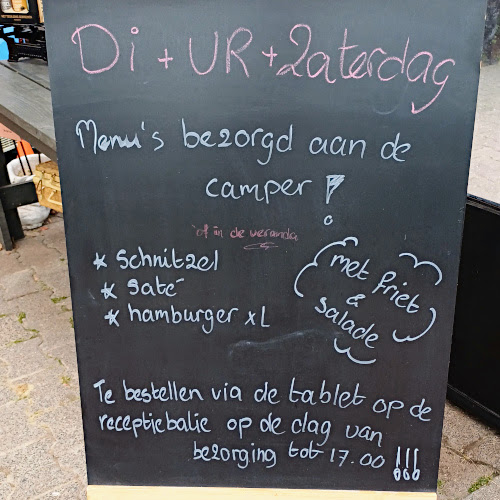 Di + VR + Zaterdag
Menu's bezorgd aan de
camper!
'of in de veranda
* Schnitzel
* Saté
* hamburger XL
met friet
&
salade
Te bestellen via de tablet op de
receptiebalie op de dag van
bezorging tot 17.00 !!!